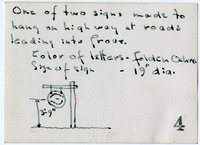 One of two signs made to
hang on highway at roads
leading into Grove.
Color of letters - Golden Ochre
Size of sign - 19" dia.
4